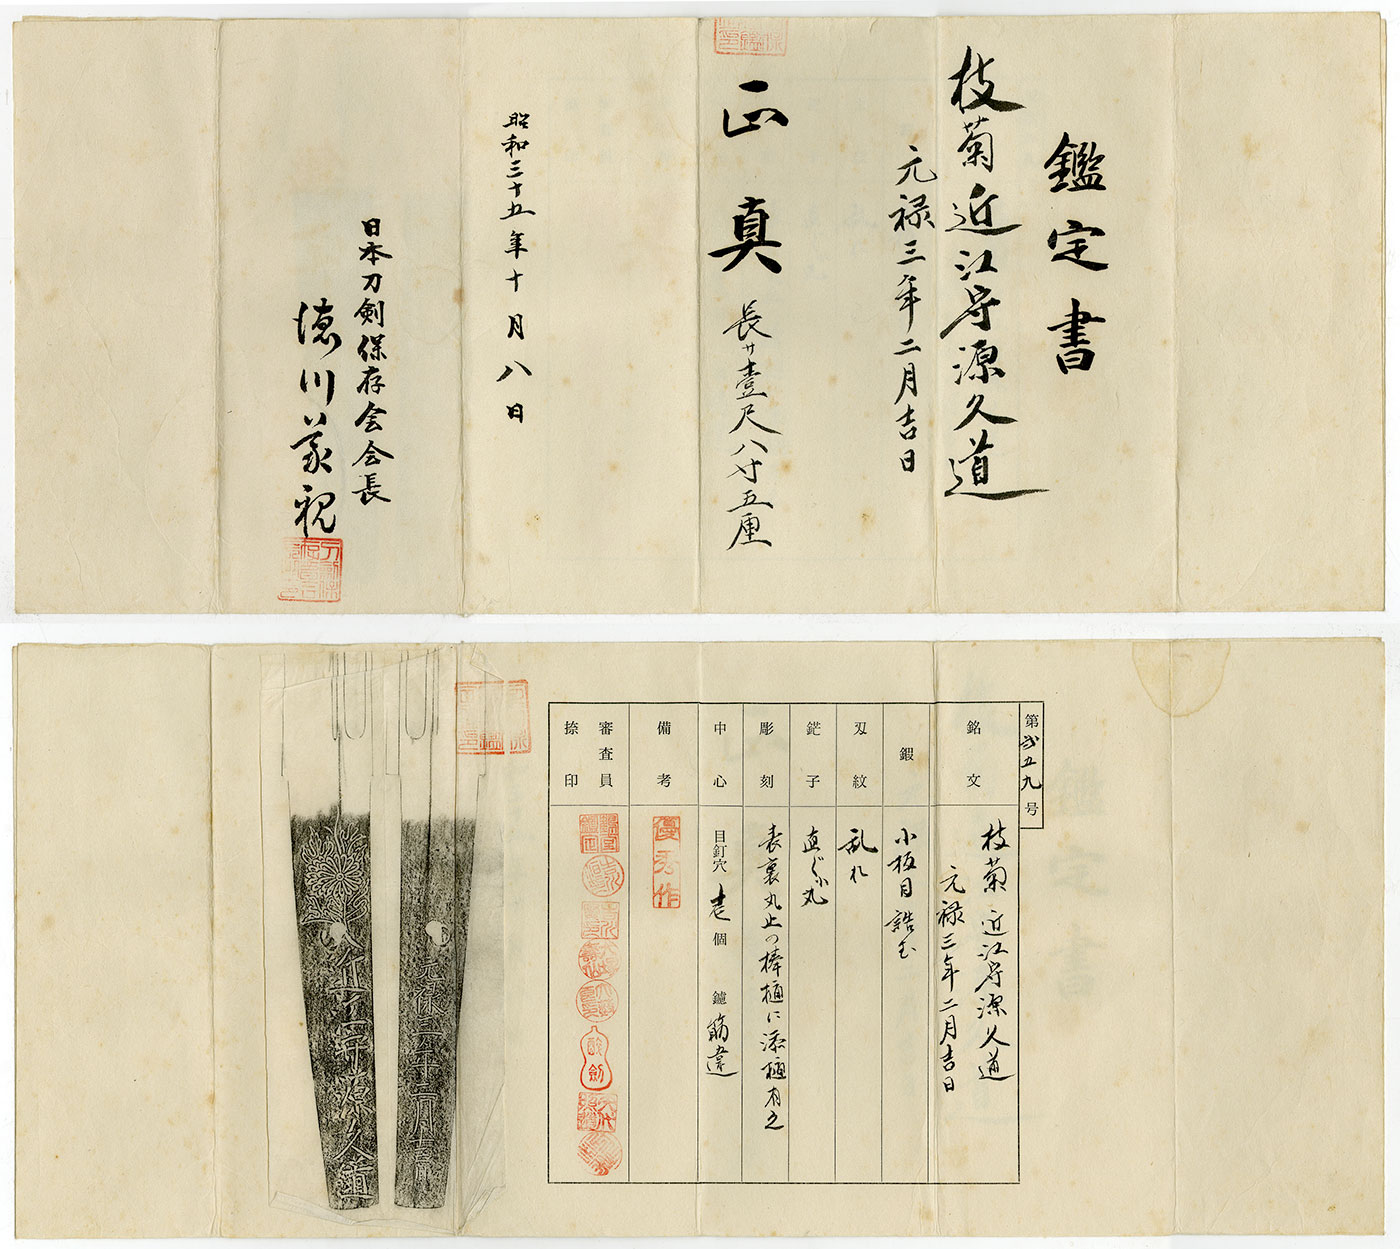 鑑定書
枝菊近江守源久道
元禄三年二月吉日
正真
長サ壹尺八寸五厘
昭和三十五年十月八日
日本刀剣保存会会長
徳川義親
第弐五九号
銘文
枝菊 近江守源久道
元禄三年二月吉日
鍜
小板目 詰む
刄紋
乱れ
鋩子
直ぐ小丸
彫刻
表裏丸止の棒樋に添樋有之
中心
目釘穴 壱個 鑢 筋違
備考
優秀作
審査員
捺印
元禄三年二月吉日
近江守源久道